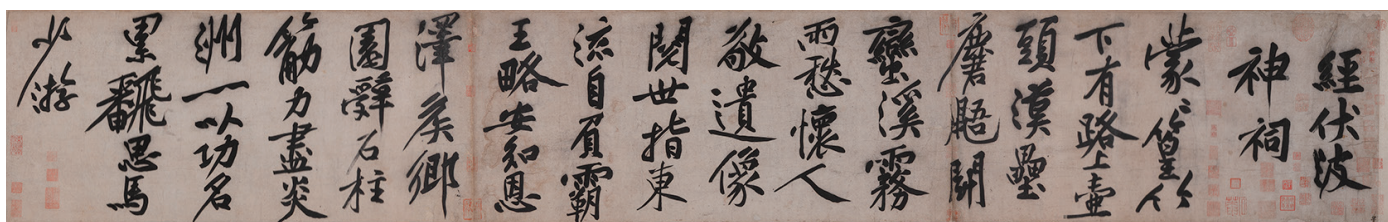 經伏波
神祠
蒙〻篁竹
下有路上壺
頭漢壘
麏鼯鬭
蠻溪霧
雨愁懷人
敬遺像
閱世指東
流自負霸
王略安知恩
澤侯鄉
園辭石柱
筋力盡炎
洲一以功名
累飜思馬
少游